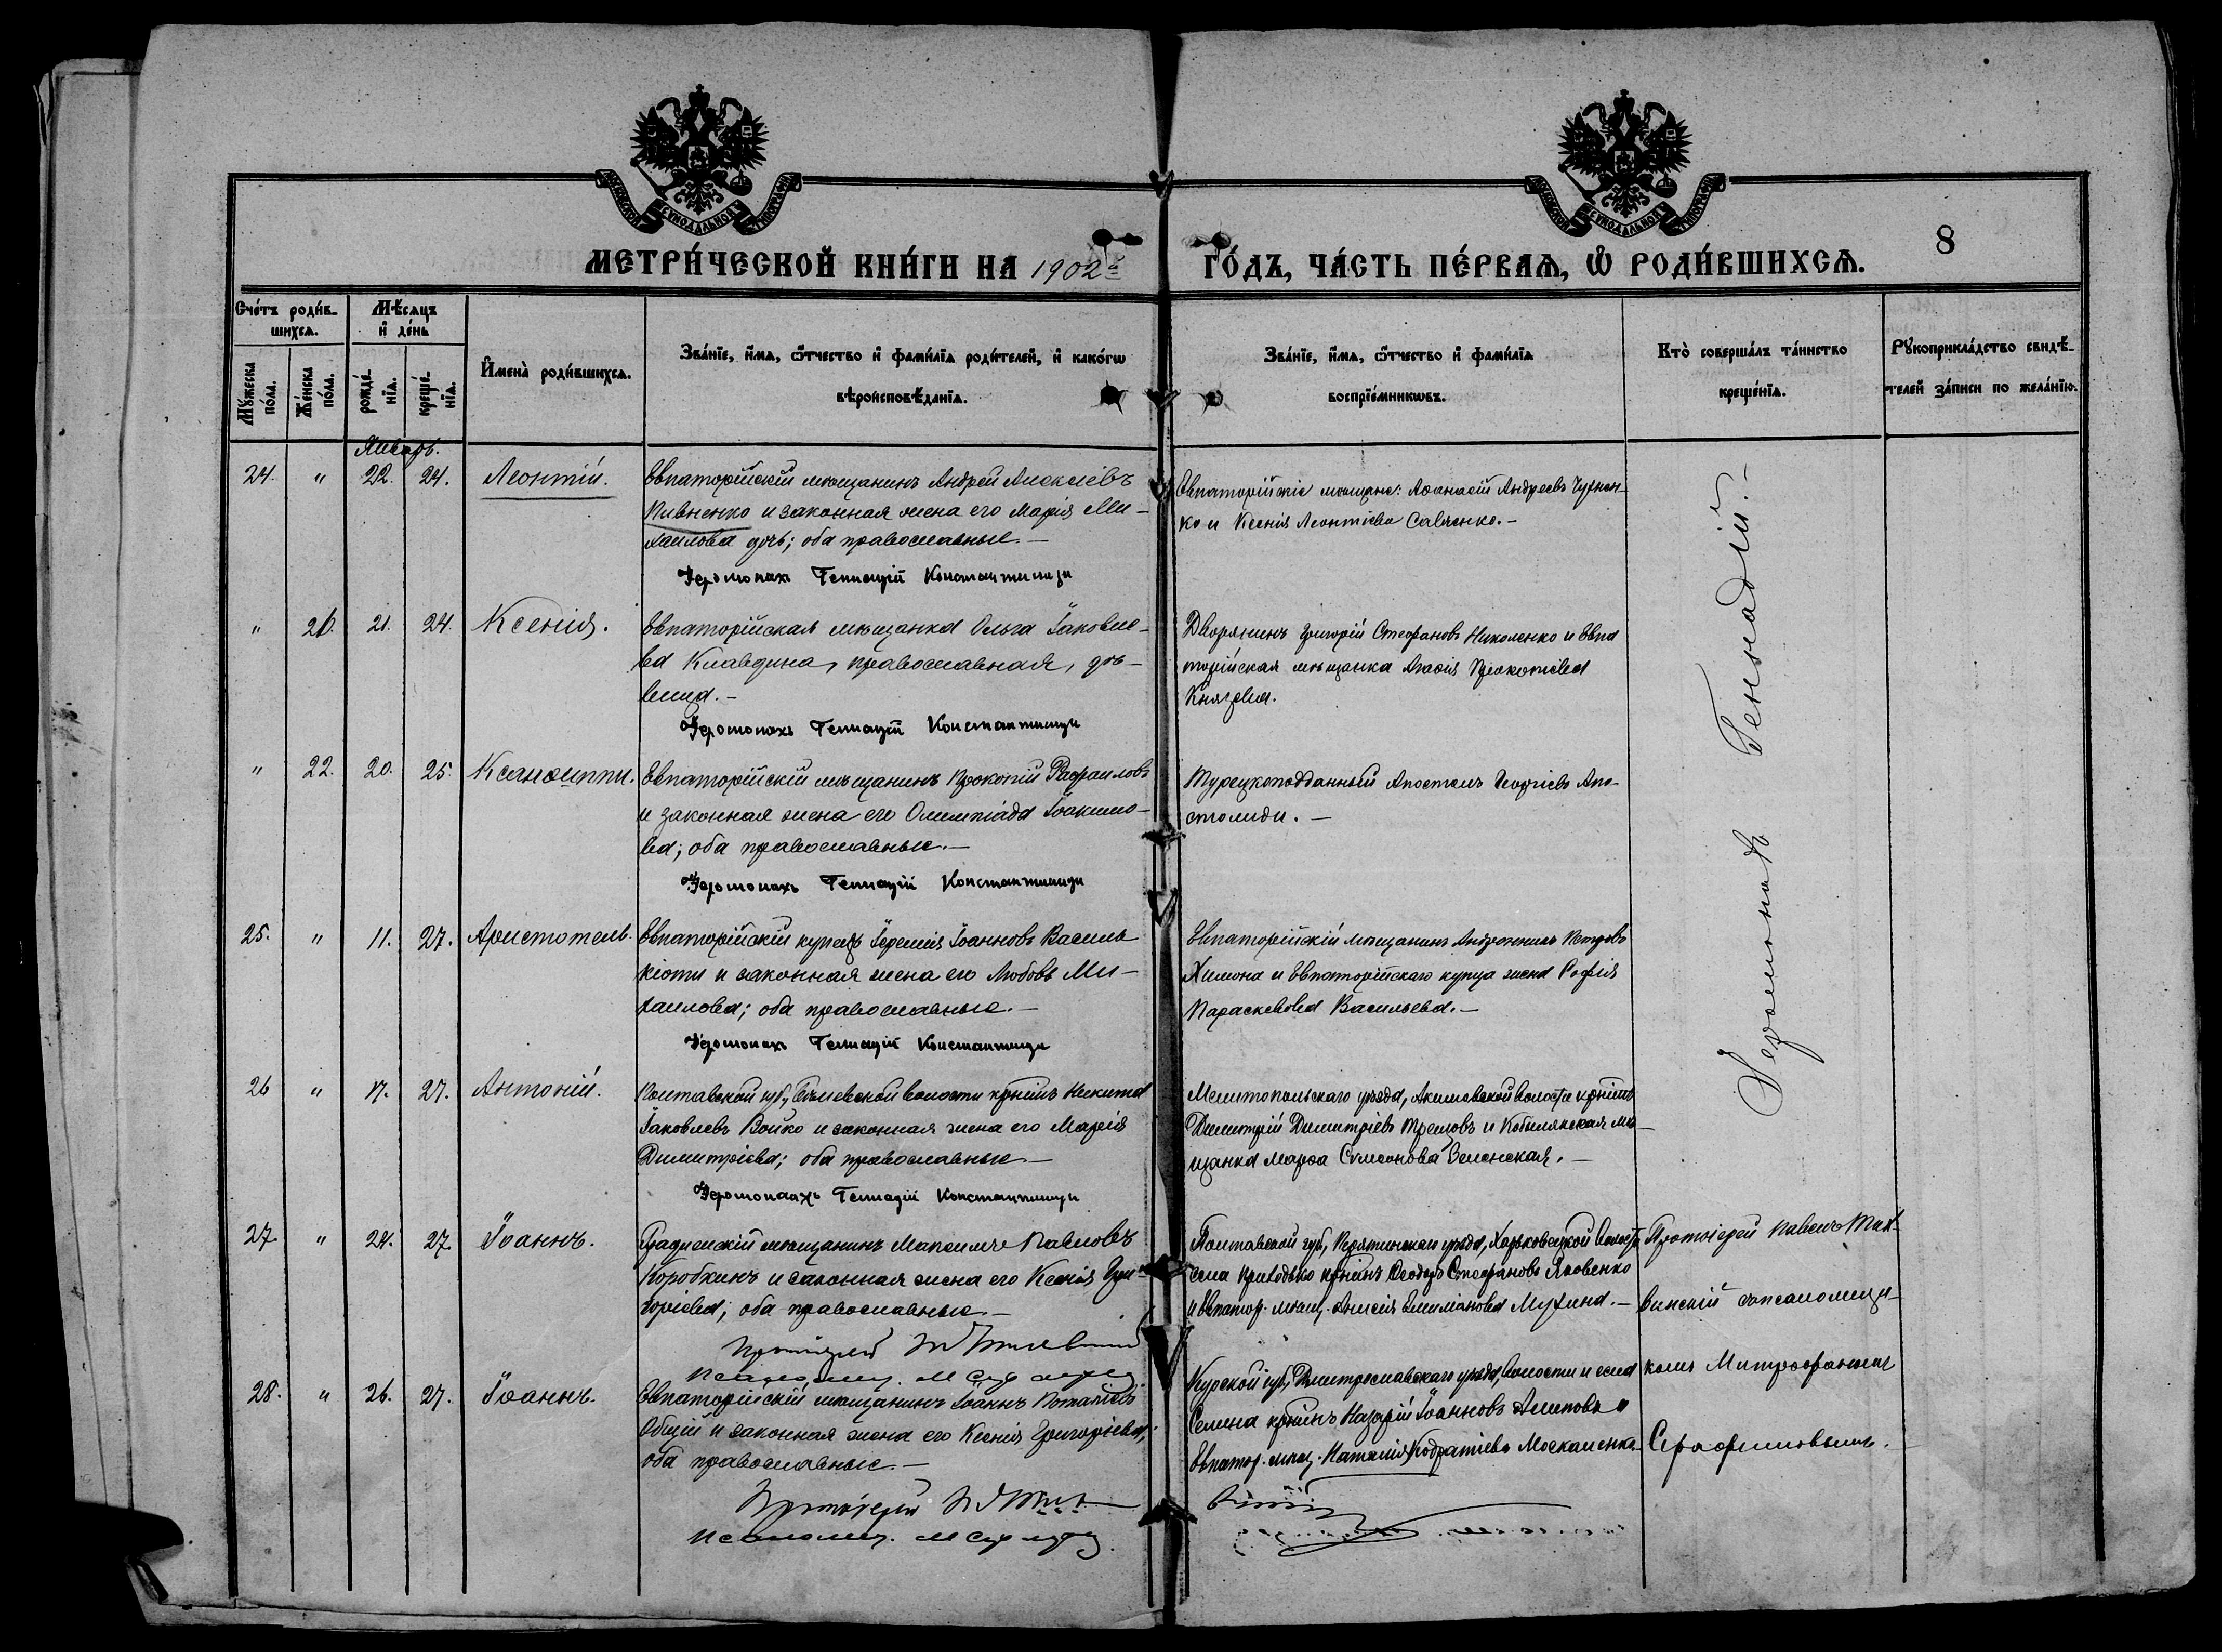 МОСКОВСКОЙ СѴНОДАЛЬНОЙ ТИПОГРАФІИ
МОСКОВСКОЙ СѴНОДАЛЬНОЙ ТИПОГРАФІИ
МЕТРИ́ЧЕСКОЙ КНИ́ГИ НА 1902й
ГО́ДЪ, ЧА́СТЬ ПЕ́РВАѦ, Ѡ РОДИ́ВШИХСѦ.
8
Сче́тъ роди́в-
шихсѧ.
Мѣ́сѧцъ
и де́нь
Мꙋ́жеска
по́ла.
Же́нска
по́ла.
рожде́-
нїѧ.
креще́-
нїѧ.
И҆мена̀ роди́вшихсѧ.
Зва́нїе, и҆́мѧ, ѻ҆́тчество и҆ фами́лїѧ роди́телей, и҆ како́гѡ
вѣроисповѣ́данїѧ.
Зва́нїе, и҆́мѧ, ѻ҆́тчество и҆ фами́лїѧ
воспрїе́мникѡвъ.
Кто̀ соверша́лъ та́инство
креще́нїѧ.
Рꙋкоприкла́дство свидѣ́-
телей за́писи по жела́нїю.
Январь.
24. " 22. 24. Леонтій.
Евпаторійскій мѣщанинъ Андрей Алексіевъ
Пивненко и законная жена его Марія Ми-
хаилова дочь; оба православные. —
Іеромонахъ Геннадій Константиниди
Евпаторійскіе мѣщане: Аѳанасій Андреевъ
ко и Ксенія Леонтіева Савченко. —
" 21. 21. 24. Ксенія.
Евпаторійская мѣщанка Ольга Іаковле-
ва Клавдина, православная, дѣ-
вица. —
Іеромонахъ Геннадій Константиниди
Дворянинъ Григорій Стефановъ Николенко и Евпа
торійская мѣщанка Анасія Прокопіева
Князева.
" 22. 20. 25. Ксанѳиппи.
Евпаторійскій мѣщанинъ Прокопій Рафаиловъ
и законная жена его Олимпіада Іоакимо-
ва; оба православные. —
Іеромонахъ Геннадій Константиниди
Турецкоподданный Апостолъ Георгіевъ Апо-
столиди. —
25. " 11. 27. Аристотель.
Евпаторійскій купецъ Іеремія Іоанновъ Василь
кіоти и законная жена его Любовь Ми-
хаилова; оба православные. —
Іеромонахъ Геннадій Константиниди
Евпаторійскій мѣщанинъ Андроникъ Петровъ
Химона и Евпаторійскаго купца жена Софія
Параскевова Васильева. —
26 " 17. 27. Антоній.
Полтавской губ., волости крѣнинъ Никита
Іаковлевъ Бойко и законная жена его Марія
Димитріева; оба православные —
Іеромонаахъ Геннадій Константиниди
Мелитопольскаго уѣзда, Акимовской волости крѣнинъ
Димитрій Димитріевъ Трещовъ и Кобелякская мѣ-
щанка Марѳа Симеонова Зеленская. —
Іеромонахъ Геннадій. —
27. " 24. 27. Іоаннъ.
Градижскій мѣщанинъ Максимъ Павловъ
Коробкинъ и законная жена его Ксенія Гри-
горіева; оба православные —
Протоіерей
Псаломщ.
Полтавской губ., Пирятинскаго уѣзда, Харьковецкой волости
села Приходько крѣнинъ Ѳеодоръ Стефановъ Яковенко
и Евпатор. мѣщ. Анисія Емиліанова Мухина. —
Протоіерей Павелъ Тих-
винскій съ псаломщи-
комъ Митрофаномъ
Серафимовымъ.
28. " 26. 27. Іоаннъ.
Евпаторійскій мѣщанинъ Іоаннъ Потапіевъ
Общій и законная жена его Ксенія Григоріева;
оба православные. —
Протоіерей
Псаломщ.
Курской губ., Дмитріевскаго уѣзда, волости и села
Селина крѣнинъ Назарій Іоанновъ Алиповъ и
Евпатор. мѣщ. Наталія Кодратіева Москаленко